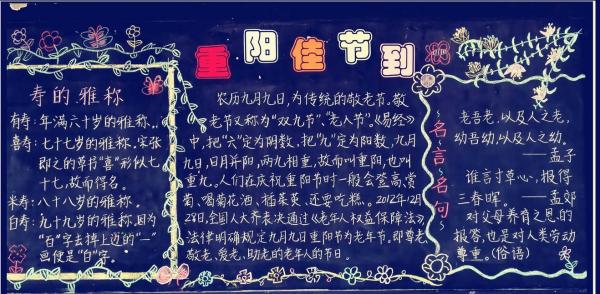 重阳佳节到
寿的雅称
有寿：年满六十岁的雅称。
喜寿：七十七岁的雅称。宋张
即之的草书“喜”形似七
十七，故而得名。
米寿：八十八岁的雅称。
白寿：九十九岁的雅称，因为
“百”字去掉上边的“一”
画便是“白”字。
农历九月九日，为传统的敬老节。敬
老节又称为“双九节”、“老人节”。《易经》
中，把“六”定为阴数，把“九”定为阳数，九月
九日，日月并阳，两九相重，故而叫重阳，也叫
重九。人们在庆祝重阳节时一般会登高、赏
菊、喝菊花酒、插茱萸、还要吃糕。2012年12月
28日，全国人大常委表决通过《老年人权益保障法》，
法律明确规定九月九日重阳节为老年节。即尊老、
敬老、爱老、助老的老年人的节日。
名言名句
老吾老，以及人之老，
幼吾幼，以及人之幼。
——孟子
谁言寸草心，报得
三春晖。——孟郊
对父母养育之恩的
报答，也是对人类劳动
尊重。（俗语）